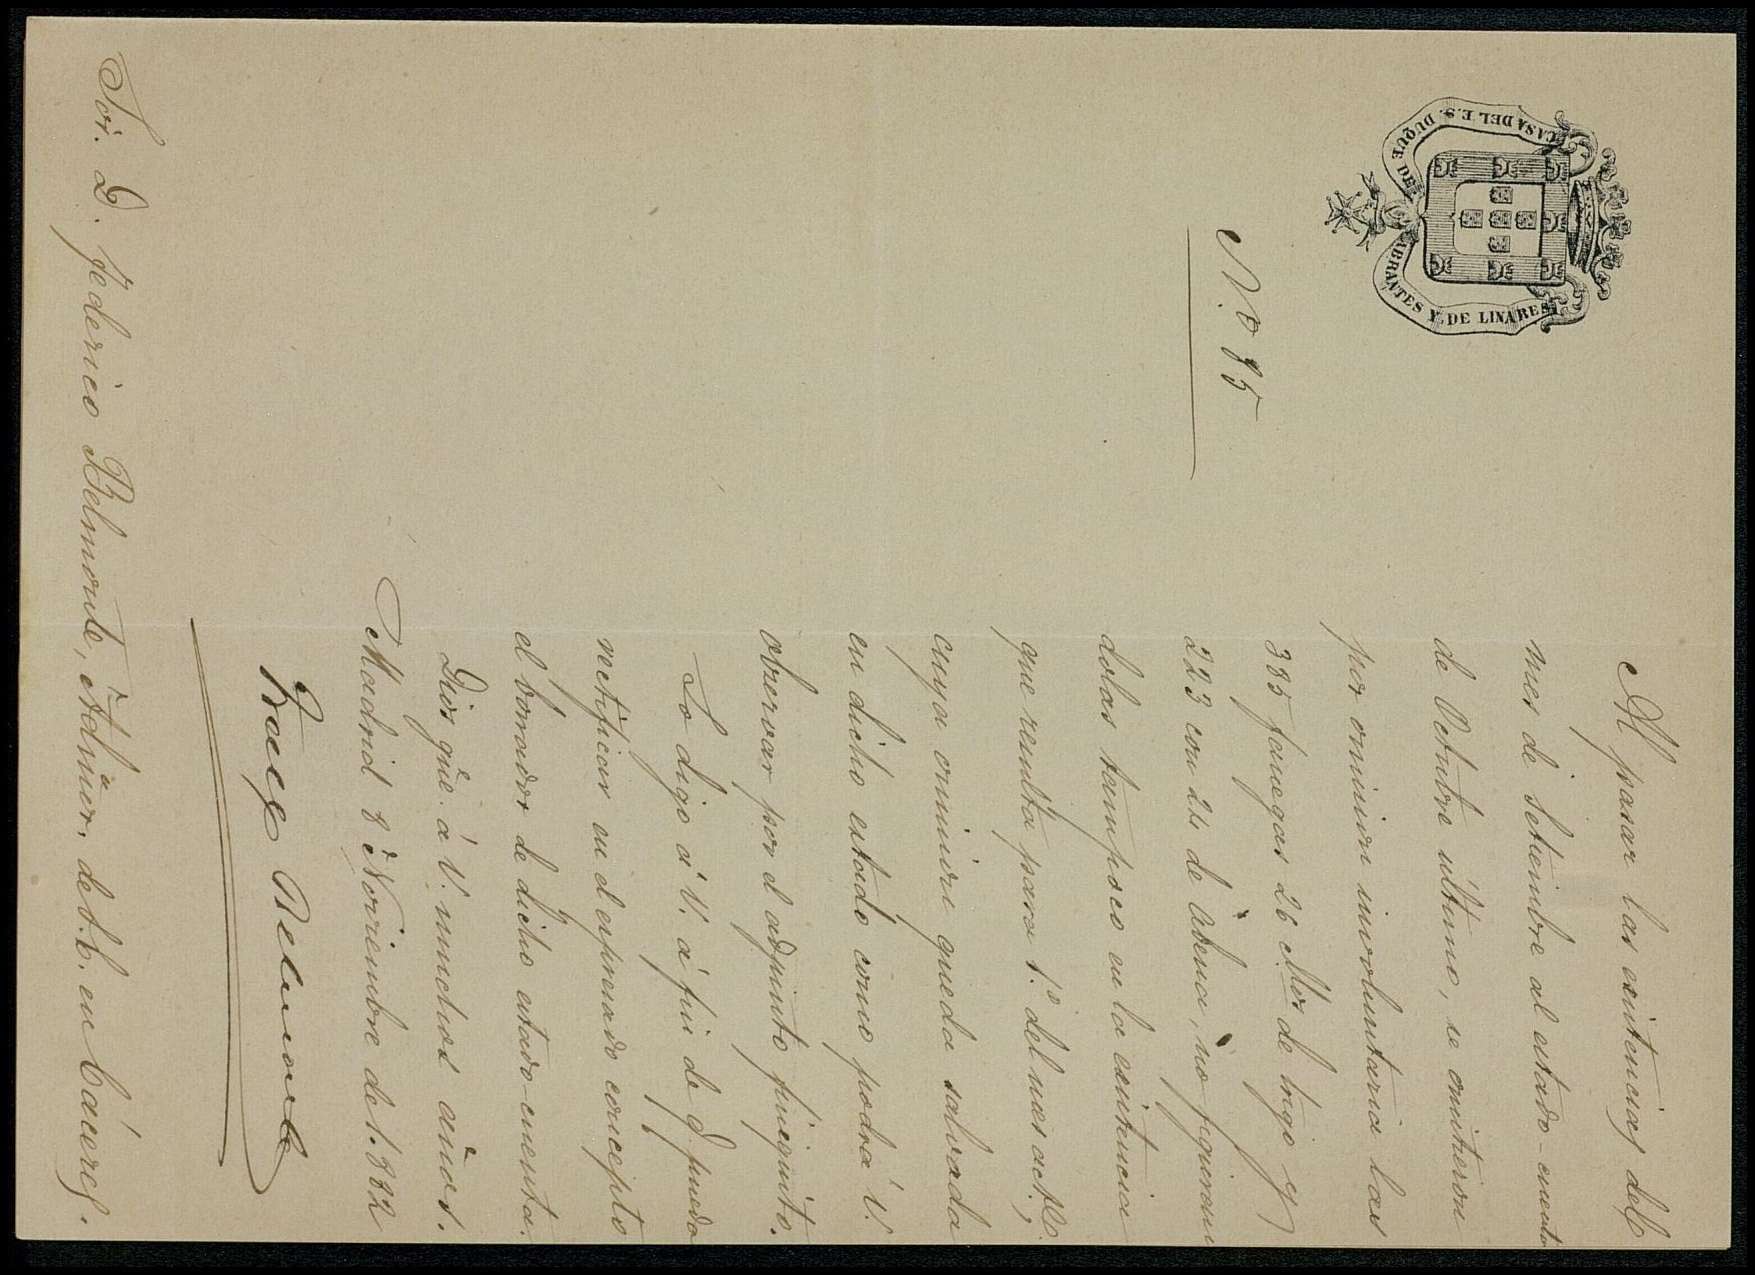 CASA DEL E. S. DUQUE DE ABRANTES Y DE LINARES
N.º 85
Al pasar las existencias del
mes de Setiembre al estado-cuenta
de Octubre último, se omitieron
por omision involuntaria las
385 fanegas 26 de trigo y
223 con 24 de abena, no figuran
dolas tampoco en la existencia
que resulta para 1.º del mes act.l,
cuya omisión queda salvada
en dicho estado como podrá V.
observar por el adjunto plieguito.
Lo digo á V. á fin de q pueda
rectificar en el expresado concepto
el borrador de dicho estado-cuenta.
Dios gūe. á V. muchos años.
Madrid 8 Noviembre de 1.882
Belmonte
Sor. D. Federico Belmonte, Admor. de S.E. en Cáceres.